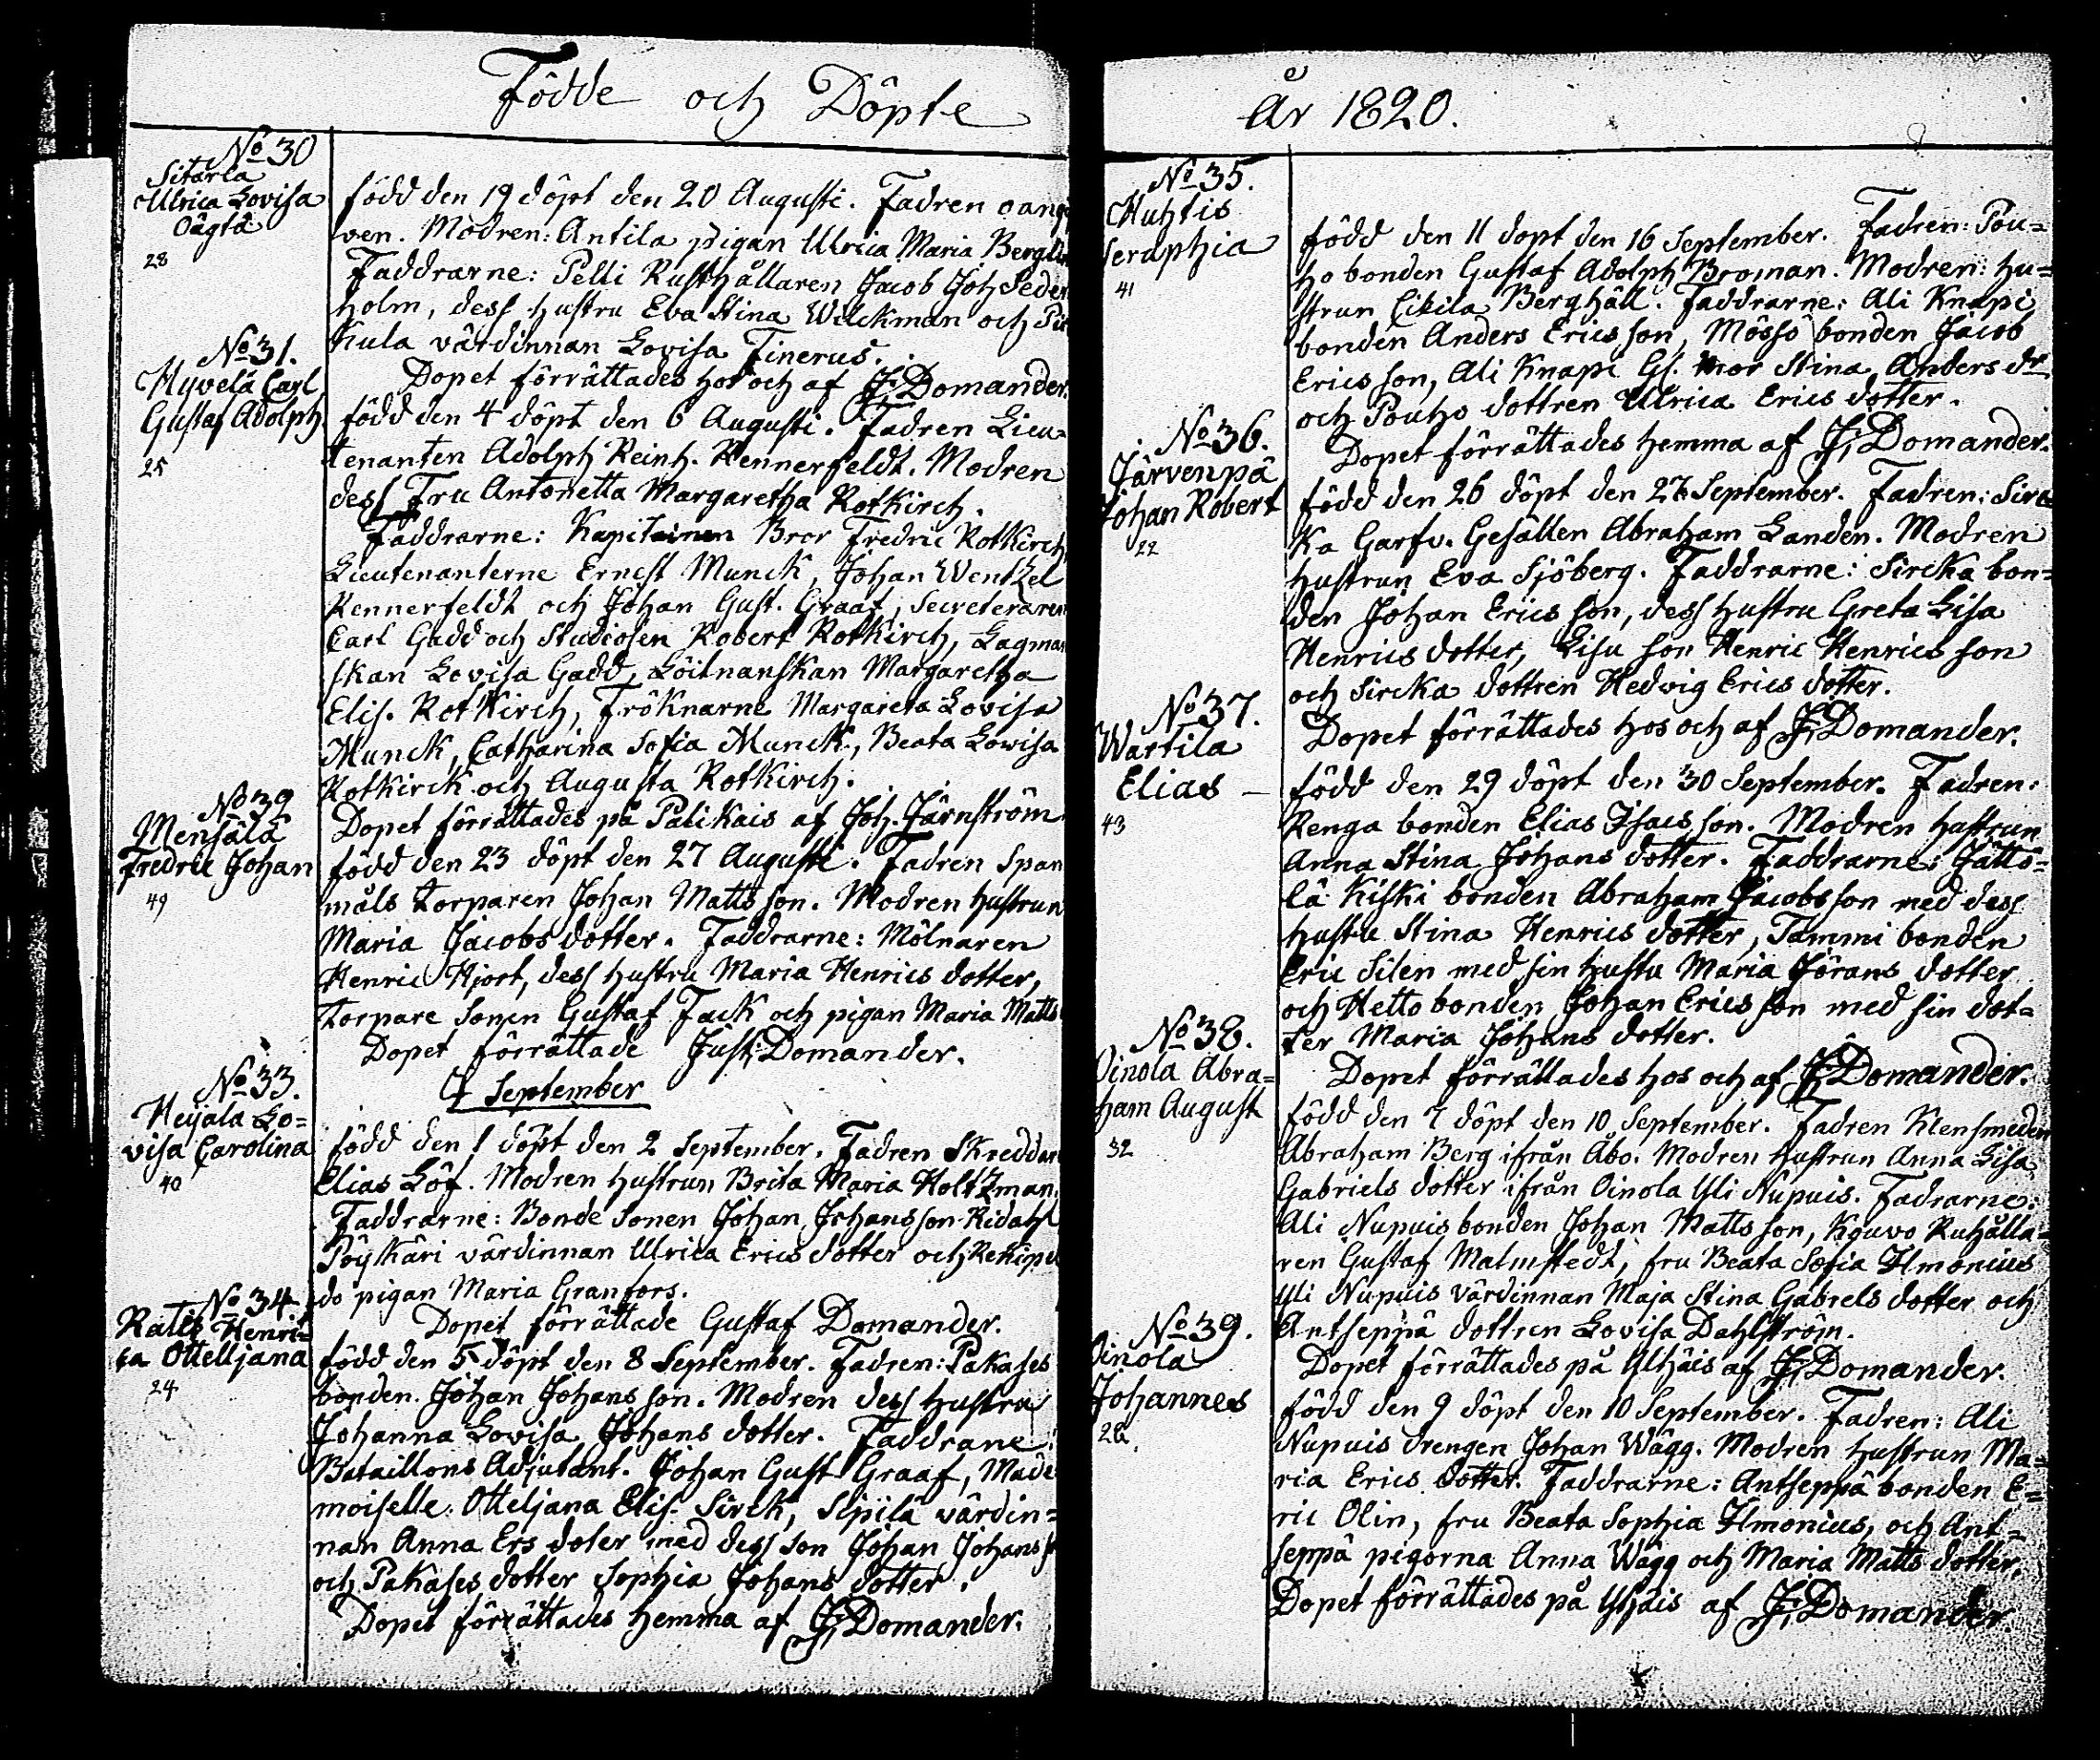 Födde och Döpte
No 30
Sitarla
Ulrica Lovisa
Oägta
28
född den 19 döpt den 20 Augusti. Fadren oangi
ven. Modren: Antila pigan Ulrica Maria Bergli
Faddrarne: Pelli Rusthållaren Jacob Joh Seder
holm, dess hustru Eva Stina Wilckman och
Kula värdinnan Lovisa Finerus.
Dopet förrättades hos och af J. Domander.
No 31.
Hyvelä Carl
Gustaf Adolph
25
född den 4 döpt den 6 Augusti. Fadren Lieu-
tenanten Adolph Reinh. Rennerfeldt. Modren
dess Fru Antonetta Margaretha Rotkirch.
Faddrarne: Kapitainen Bror Fredric Rotkirch
Lieutenanterne Ernest Munck, Johan Wentzel
Rennerfeldt och Johan Gust. Graaf, Secreteraren
Carl Gadd och Studiosen Robert Rotkirch, Lagman
skan Lovisa Gadd, Löitnanskan Margaretha
Elis. Rotkirch, Fröknarne Margareta Lovisa
Munck, Catharina Sofia Munck, Beata Lowisa
Rotkirck och Augusta Rotkirch.
Dopet förrättades på Palikais af Joh. Järnström
No 32
Mensälä
Fredric Johan
49
född den 23 döpt den 27 Augusti. Fadren Span
måls torparen Johan Matts son. Modren hustrun
Maria Jacobs dotter. Faddrarne: Mölnaren
Henric Hjort, dess hustru Maria Henrics dotter,
torpare sonen Gustaf Fack och pigan Maria Matts
Dopet förrättade Just. Domander.
September
No 33.
Heyala Lo-
visa Carolina
40
född den 1 döpt den 2 September. Fadren Skreddar
Elias Löf. Modren hustrun Brita Maria Holtzman.
Faddrarne: Bonde sonen Johan Johansson Ridahl
Pöykäri värdinnan Ulrica Erics dotter och Rekipe
do pigan Maria Granfors.
Dopet förrättade Gustaf Domander.
No 34
Ratis Henri-
ca Ottelljana
24
född den 5 döpt den 8 September. Fadren: Pakases
bonden Johan Johans son. Modren dess hustru
Johanna Lovisa Johans dotter. Faddrane:
Bataillons Adjutant. Johan Gust Graaf, Made
moiselle Otteljana Elis. Sirck, Sipilä värdin-
nan Anna Ers doter med dess son Johan Johans
och Pakases dotter Sophia Johans dotter.
Dopet förrättades hemma af J. Domander.
år 1820.
No 35.
Huhtis
Seraphia
41
född den 11 dopt den 16 September. Fadren: Pou-
ho bonden Gustaf Adolph Broman. Modren: hu-
strun Cikila Berghäll. Faddrarne: Ali Knapi
bonden Anders Erics son, Mössö bonden Jacob
Erics son, Ali Knapi Gl. mor Stina Anders dr
och Pouho dottren Ulrica Erics dotter.
Dopet förrättades hemma af J. Domander.
No 36.
Järvenpä
Johan Robert
22
född den 26 döpt den 27 September. Fadren: Sirc
ka Garfv. Gesällen Abraham Landen. Modren
hustrun Eva Sjöberg. Faddrarne: Sircka bon-
den Johan Erics son, dess hustru Greta Lisa
Henrics dotter, Eisu son Henric Henrics son
och Sircka dottren Hedwig Erics dotter.
Dopet förrättades hos och af J. Domander.
No 37.
Wartila
Elias –
43
född den 29 döpt den 30 September. Fadren:
Renga bonden Elias Isacs son. Modren hustrun
Anna Stina Johans dotter. Faddrarne: Jättö-
lä Kiski bonden Abraham Jacobsson med dess
hustru Stina Henrics dotter, Tammi bonden
Eric Silen med sin hustu Maria Jörans dotter
och Hetto bonden Johan Erics son med sin dot-
ter Maria Johans dotter.
Dopet förrättades hos och af J. Domander.
No 38.
Oinola Abra-
ham August
32
född den 7 döpt den 10 September. Fadren Klensmeden
Abraham Berg ifrån Åbo. Modren hustrun Anna Lisa
Gabriels dotter ifrån Oinola Yli Nupuis. Fadrarne:
Ali Nupuis bonden Johan Matts son, Kouvo Ruhålla-
ren Gustaf Malmstedt, fru Beata Sofia Ilmonius
Yli Nupuis värdinnan Maja Stina Gabrels dotter och
Antseppä dottren Lovisa Dahlström.
Dopet förrättades på Ylhäis af J. Domander.
No 39.
Oinola
Johannes
född den 9 döpt den 10 September. Fadren: Ali
Nupuis drengen Johan Wägg. Modren hustrun Ma-
ria Erics dotter. Faddrarne: Antseppä bonden E-
ric Olin, fru Beata Sophia Ilmonius, och Ant-
seppä pigorna Anna Wägg och Maria Matts dotter.
Dopet förrättades på Ylhäis af J. Domander.